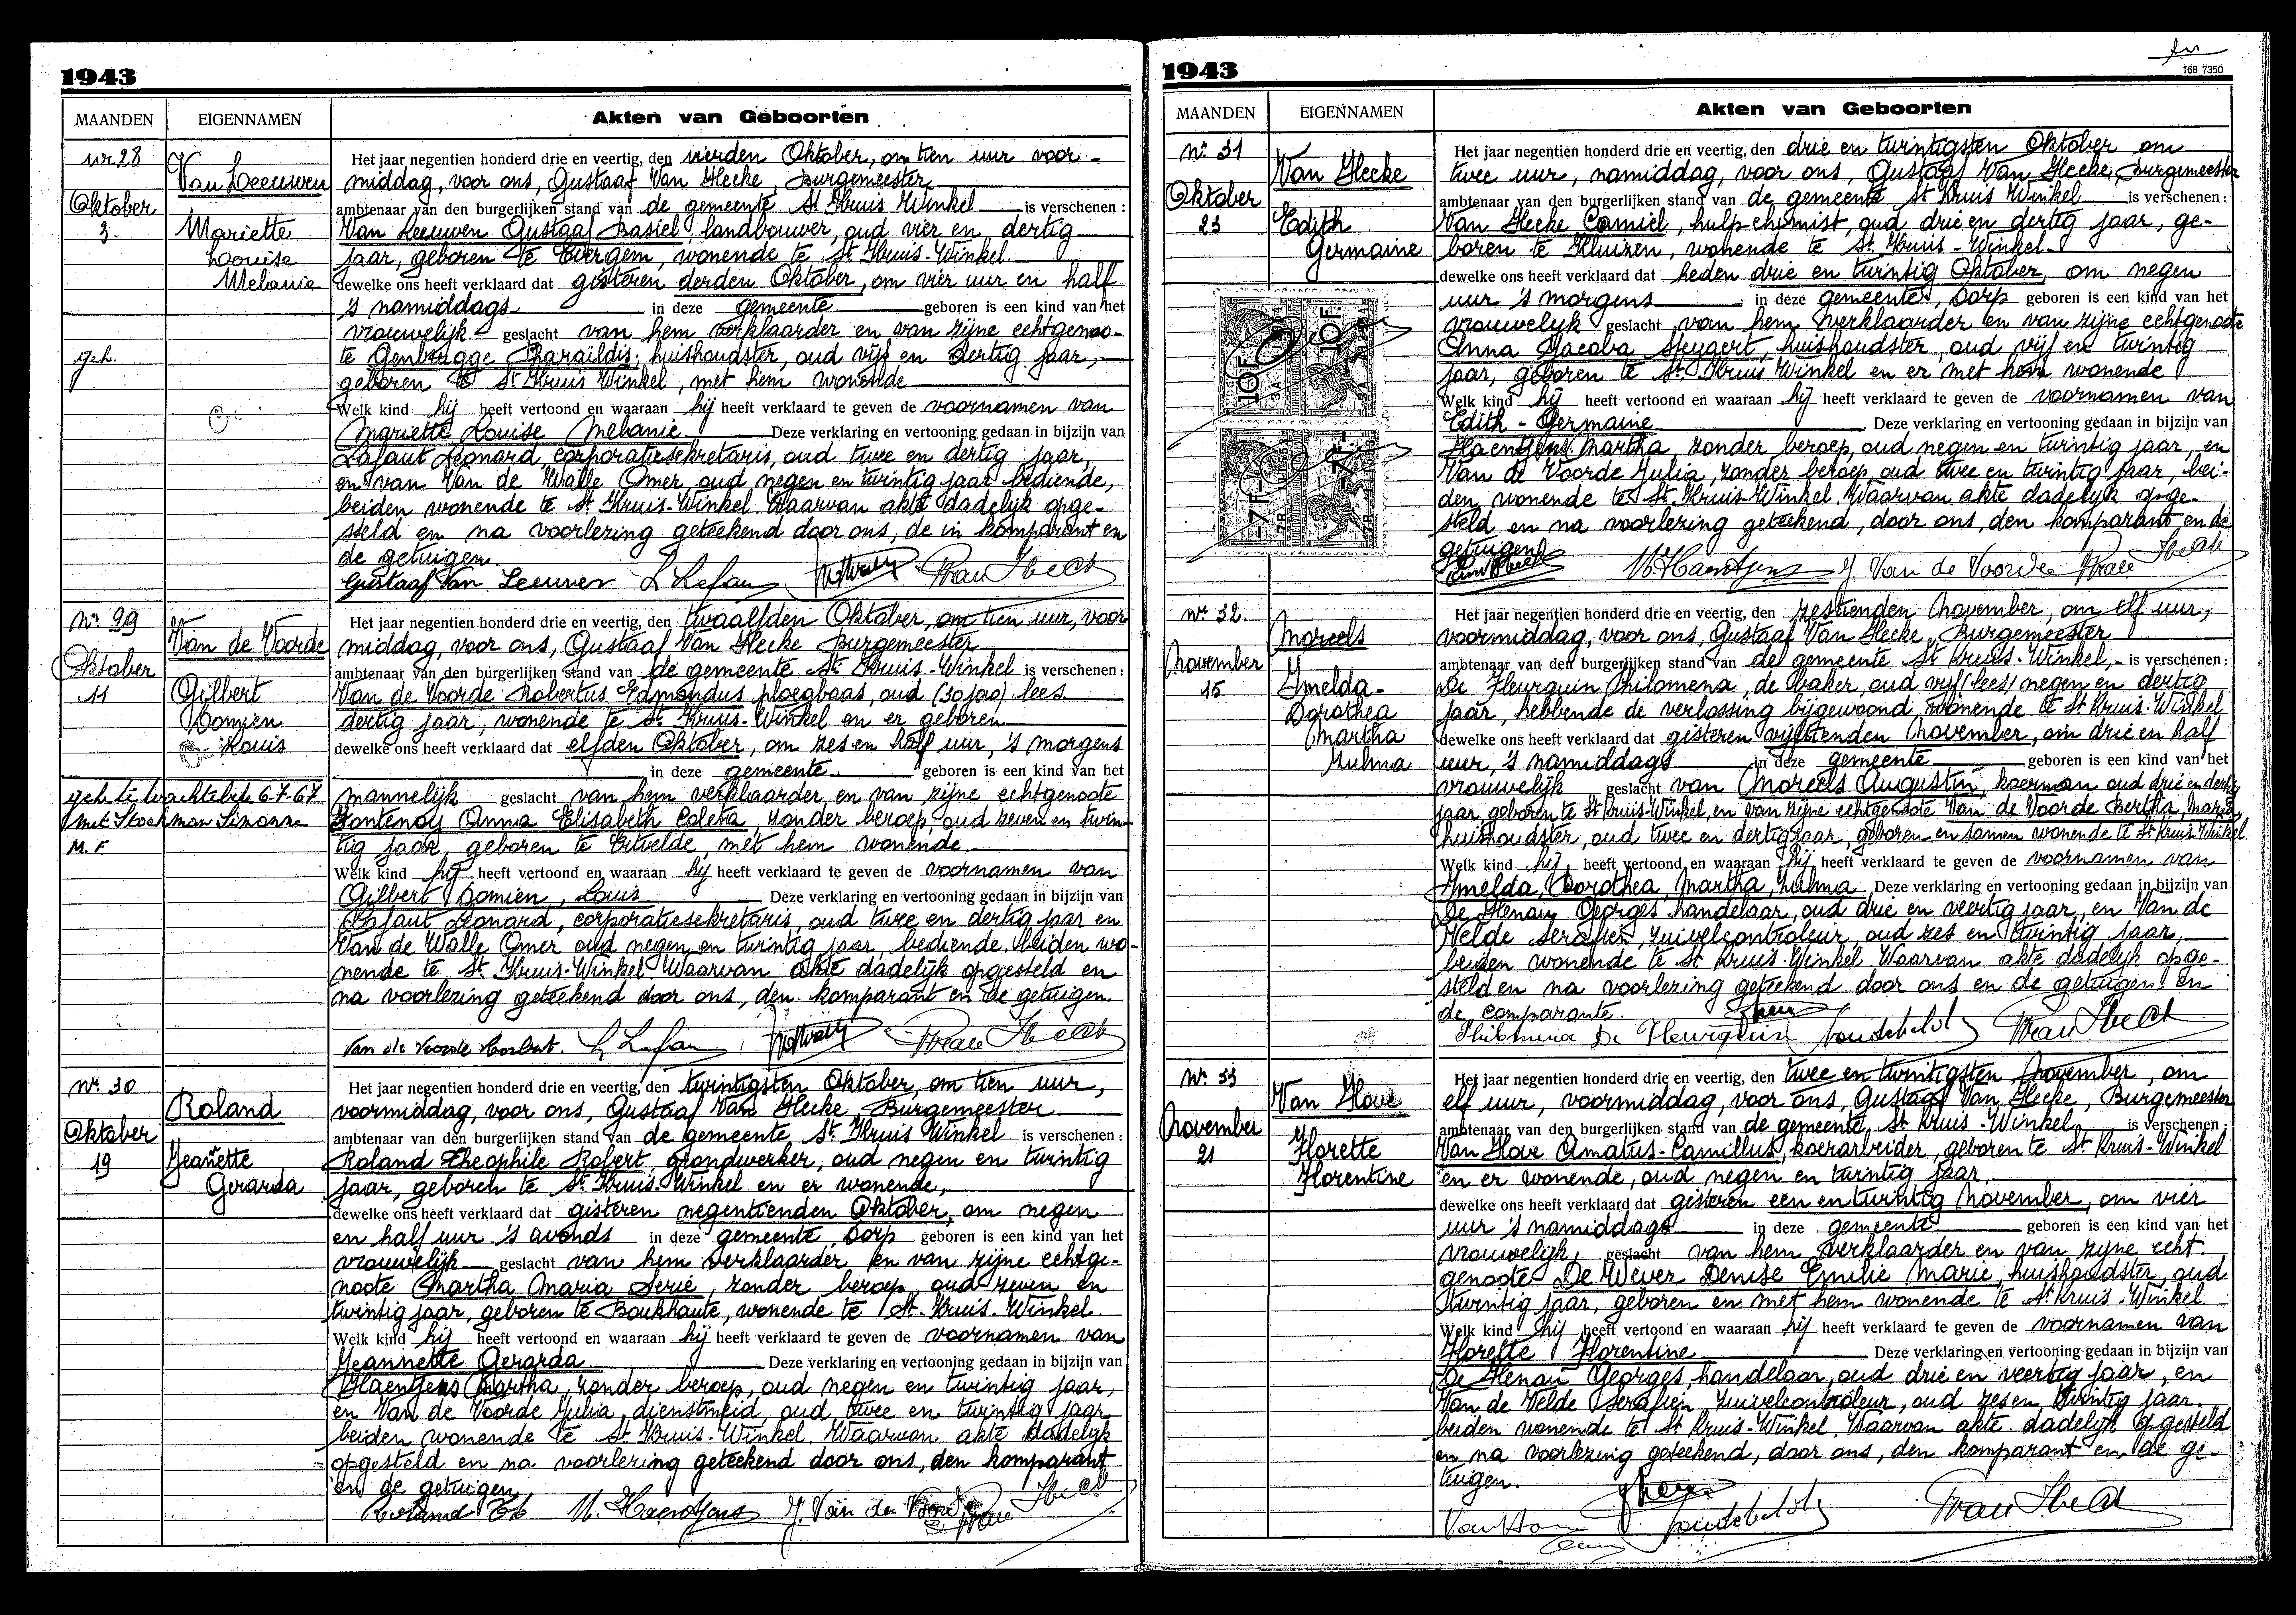 1943
MAANDEN
EIGENNAMEN
Akten van Geboorten
nr 28
Van Leeuwen
Oktober
3.
Mariette
Louise
Melanie
geh.
Het jaar negentien honderd drie en veertig, den vierden Oktober, om tien uur voor-
middag, voor ons, Gustaaf Van Hecke, Burgemeester
ambtenaar van den burgerlijken stand van de gemeente St Kruis Winkel is verschenen :
Van Leeuwen Gustaaf Basiel, landbouwer, oud vier en dertig
jaar, geboren te Evergem, wonende te St. Kruis-Winkel.
dewelke ons heeft verklaard dat gisteren derden Oktober, om vier uur en half
's namiddags in deze gemeente geboren is een kind van het
vrouwelijk geslacht van hem verklaarder en van zijne echtgenoo-
te Genbrugge Pharaïldis, huishoudster, oud vijf en dertig jaar,
geboren te St Kruis Winkel, met hem wonende
Welk kind hij heeft vertoond en waaraan hij heeft verklaard te geven de voornamen van
Mariette Louise Melanie. Deze verklaring en vertooning gedaan in bijzijn van
Lafaut Leonard, corporatiesekretaris, oud twee en dertig jaar,
en van Van de Walle Omer, oud negen en twintig jaar bediende,
beiden wonende te St. Kruis-Winkel. Waarvan akte dadelijk opge-
steld en na voorlezing geteekend door ons, de in komparant en
de getuigen.
Gustaaf Van Leeuwen L Lafau
nr 29
Van de Voorde
Oktober
11
Gilbert
Damien
Louis
geh. te Wachtebeke 6-7-67
met Stockman Simonne
M. F
Het jaar negentien honderd drie en veertig, den twaalfden Oktober, om tien uur, voor
middag, voor ons, Gustaaf Van Hecke Burgemeester
ambtenaar van den burgerlijken stand van de gemeente St. Kruis-Winkel is verschenen :
Van de Voorde Robertus Edmondus ploegbaas, oud (30 jaar) lees
dertig jaar, wonende te St. Kruis-Winkel en er geboren
dewelke ons heeft verklaard dat elfden Oktober, om zes en half uur, 's morgens
in deze gemeente geboren is een kind van het
mannelijk geslacht van hem verklaarder en van zijne echtgenoote
Fontenoy Anna Elisabeth Coleta, zonder beroep, oud zeven en twin-
tig jaar, geboren te Ertvelde, met hem wonende.
Welk kind hij heeft vertoond en waaraan hij heeft verklaard te geven de voornamen van
Gilbert Damien, Louis Deze verklaring en vertooning gedaan in bijzijn van
Lafaut Leonard, corporatiesekretaris, oud twee en dertig jaar en
Van de Walle Omer oud negen en twintig jaar, bediende, beiden wo-
nende te St. Kruis-Winkel. Waarvan akte dadelijk opgesteld en
na voorlezing geteekend door ons, den komparant en de getuigen.
Van de Voorde Norbert. L Lafau
nr 30
Roland
Oktober
19
Jeannette
Gerarda
Het jaar negentien honderd drie en veertig, den twintigsten Oktober, om tien uur,
voormiddag, voor ons, Gustaaf Van Hecke, Burgemeester
ambtenaar van den burgerlijken stand van de gemeente St. Kruis Winkel is verschenen :
Roland Theophile Robert, grondwerker, oud negen en twintig
jaar, geboren te St. Kruis-Winkel en er wonende,
dewelke ons heeft verklaard dat gisteren negentienden Oktober, om negen
en half uur 's avonds in deze gemeente, Dorp geboren is een kind van het
vrouwelijk geslacht van hem verklaarder en van zijne echtge-
noote Martha Maria Serie, zonder beroep, oud zeven en
twintig jaar, geboren te Boukhaute, wonende te St. Kruis-Winkel.
Welk kind hij heeft vertoond en waaraan hij heeft verklaard te geven de voornamen van
Jeannette Gerarda. Deze verklaring en vertooning gedaan in bijzijn van
Haentjens Martha, zonder beroep, oud negen en twintig jaar,
en Van de Voorde Julia, dienstmeid, oud twee en twintig jaar
beiden wonende te St. Kruis-Winkel. Waarvan akte dadelijk
opgesteld en na voorlezing geteekend door ons, den komparant
en de getuigen
Roland Th M. Haentjens J. Van de Voorde
1943
168 7350
MAANDEN
EIGENNAMEN
Akten van Geboorten
nr 31
Van Hecke
Oktober
23
Edith
Germaine
10F
10F.
-7F-
-7F-
Het jaar negentien honderd drie en veertig, den drie en twintigsten Oktober om
twee uur, namiddag, voor ons, Gustaaf Van Hecke, Burgemeester
ambtenaar van den burgerlijken stand van de gemeente St Kruis Winkel is verschenen :
Van Hecke Camiel, hulp-chemist, oud drie en dertig jaar, ge-
boren te Kluizen, wonende te St. Kruis-Winkel.
dewelke ons heeft verklaard dat heden drie en twintig Oktober, om negen
uur 's morgens in deze gemeente, Dorp geboren is een kind van het
vrouwelijk geslacht van hem verklaarder en van zijne echtgenoote
Anna Jacoba Steyaert, huishoudster, oud vijf en twintig
jaar, geboren te St. Kruis Winkel en er met hem wonende
Welk kind hij heeft vertoond en waaraan hij heeft verklaard te geven de voornamen van
Edith - Germaine Deze verklaring en vertooning gedaan in bijzijn van
Haentjens Martha, zonder beroep, oud negen en twintig jaar, en
Van de Voorde Julia, zonder beroep, oud twee en twintig jaar, bei-
den, wonende te St. Kruis-Winkel. Waarvan akte dadelijk opge-
steld en na voorlezing geteekend, door ons, den komparant en de
getuigen
M. Haentjens J Van de Voorde
nr 32.
Moreels
November
15
Imelda-
Dorothea
Martha
Zulma
Het jaar negentien honderd drie en veertig, den zestienden November, om elf uur,
voormiddag, voor ons, Gustaaf Van Hecke, Burgemeester
ambtenaar van den burgerlijken stand van de gemeente St Kruis-Winkel, - is verschenen :
De Fleurquin Philomena, de baker, oud vijf (lees) negen en dertig
jaar, hebbende de verlossing bijgewoond, wonende te St Kruis-Winkel
dewelke ons heeft verklaard dat gisteren vijftienden November, om drie en half
uur, 's namiddags in deze gemeente geboren is een kind van het
vrouwelijk geslacht van Moreels Augustin, koerman oud drie en dertig
jaar, geboren te St Kruis-Winkel, en van zijne echtgenoote Van de Voorde Bertha, Maria
huishoudster, oud twee en dertig jaar, geboren en samen wonende te St Kruis Winkel.
Welk kind hij heeft vertoond en waaraan hij heeft verklaard te geven de voornamen van
Imelda, Dorothea, Martha, Zulma. Deze verklaring en vertooning gedaan in bijzijn van
De Henau Georges, handelaar, oud drie en veertig jaar, en Van de
Velde Serafien, zuivelcontroleur, oud zes en twintig jaar,
beiden wonende te St. Kruis-Winkel. Waarvan akte dadelijk opge-
steld en na voorlezing geteekend door ons en de getuigen en
de comparante.
Philomena De Fleurquin
nr 33
Van Hove
November
21
Florette
Florentine
Het jaar negentien honderd drie en veertig, den twee en twintigsten November, om
elf uur, voormiddag, voor ons, Gustaaf Van Hecke, Burgemeester
ambtenaar van den burgerlijken stand van de gemeente, St Kruis-Winkel is verschenen :
Van Hove Amatus-Camillus, koerarbeider, geboren te St. Kruis-Winkel
en er wonende, oud negen en twintig jaar,
dewelke ons heeft verklaard dat gisteren een en twintig November, om vier
uur 's namiddags in deze gemeente geboren is een kind van het
vrouwelijk, geslacht van hem verklaarder en van zijne echt
genoote De Wever Denise Emilie Marie, huishoudster, oud
twintig jaar, geboren en met hem wonende te St. Kruis-Winkel
Welk kind hij heeft vertoond en waaraan hij heeft verklaard te geven de voornamen van
Florette Florentine Deze verklaring en vertooning gedaan in bijzijn van
De Henau Georges handelaar, oud drie en veertig jaar, en
Van de Velde Serafien zuivelcontroleur, oud zes en twintig jaar.
beiden wonende te St Kruis-Winkel. Waarvan akte dadelijk opgesteld
en na voorlezing geteekend, door ons, den komparant en de ge-
tuigen.